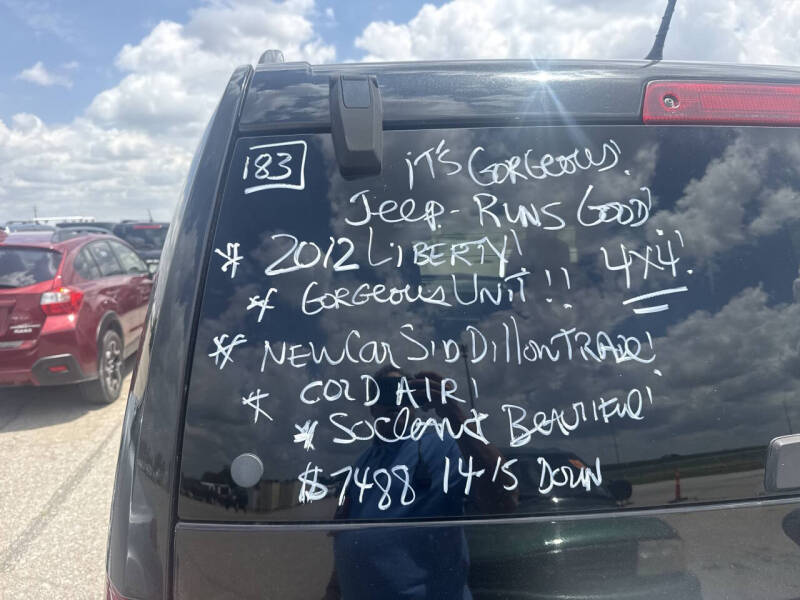 183
iT'S GORGEOUS!
Jeep - RUNS GOOD!
* 2012 LiBERTY! 4X4!
* GORGEOUS UNiT!!
* NEW CAR SID Dillon TRADE!
* COLD AIR!
* So Clean & BEAUTIFUL!
$7488 1415 DOWN